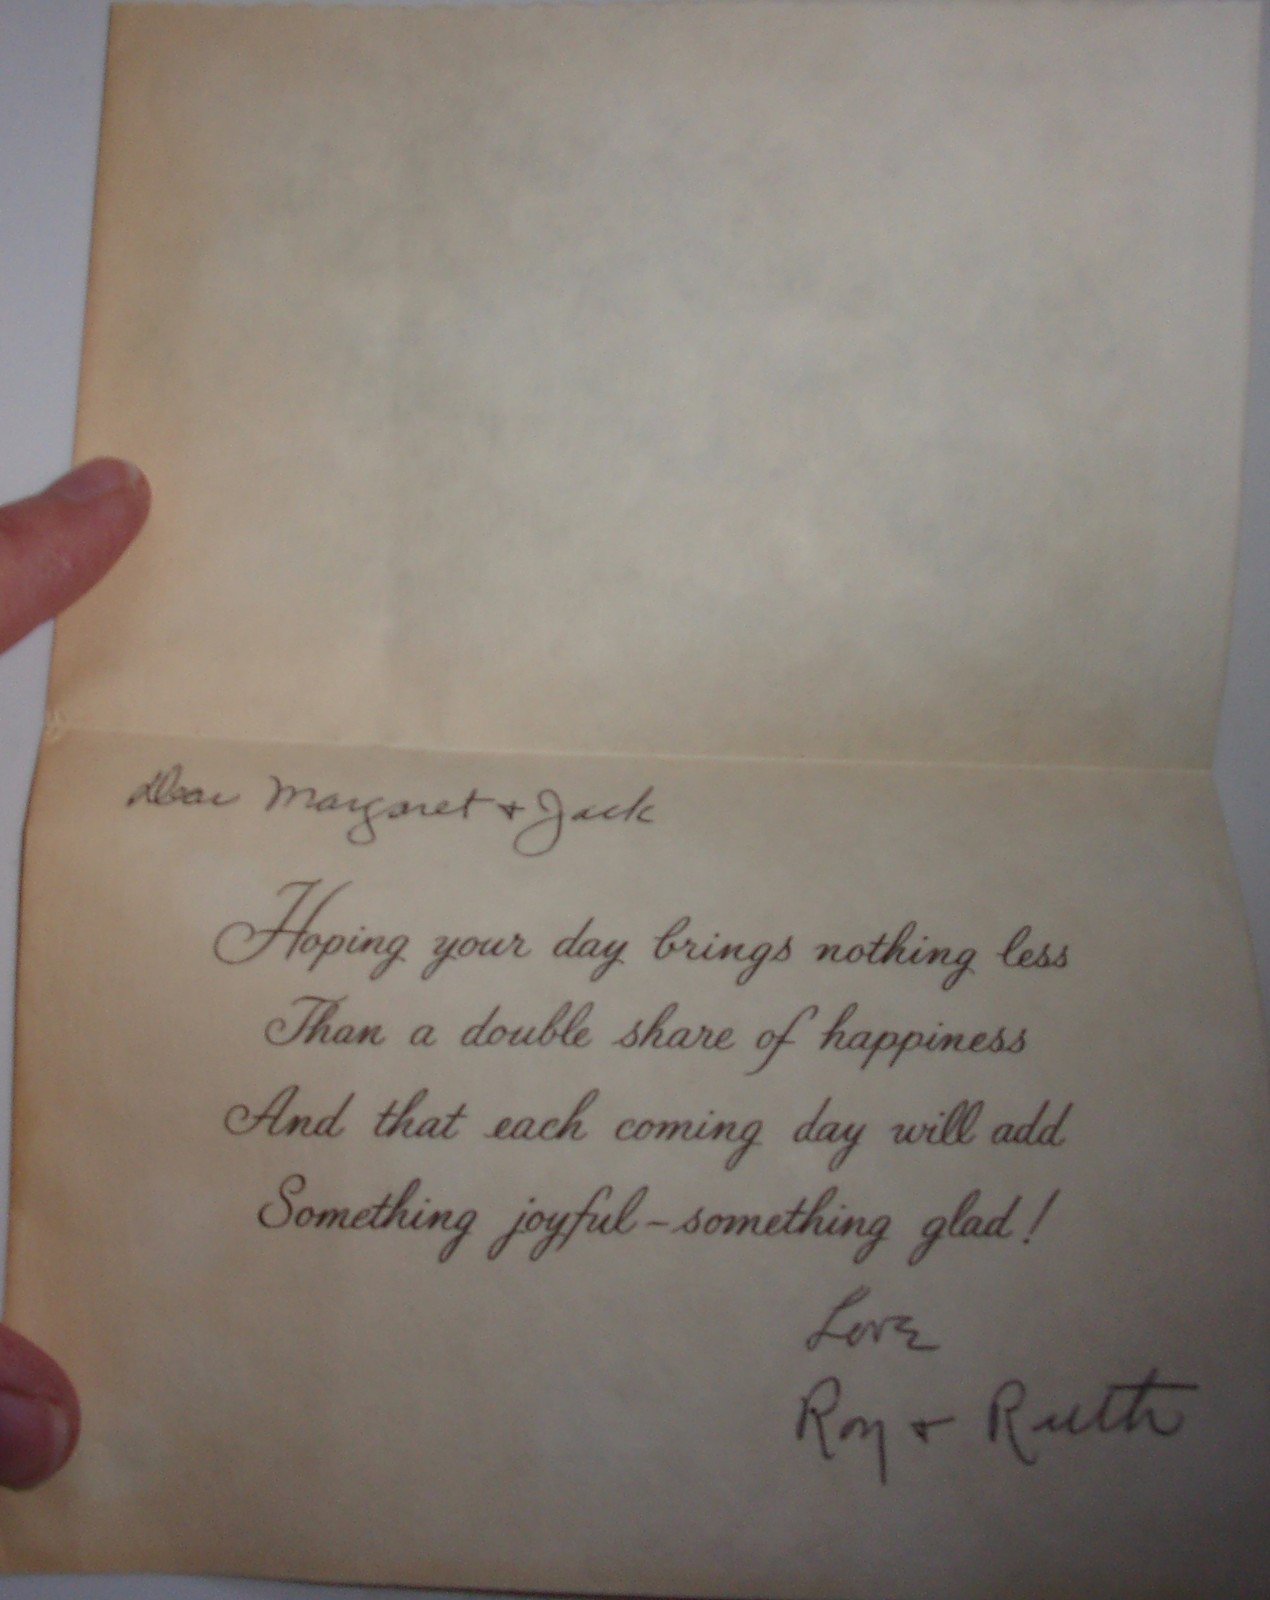 Dear Margaret + Jack
Hoping your day brings nothing less
Than a double share of happiness
And that each coming day will add
Something joyful – something glad!
Love
Roy + Ruth